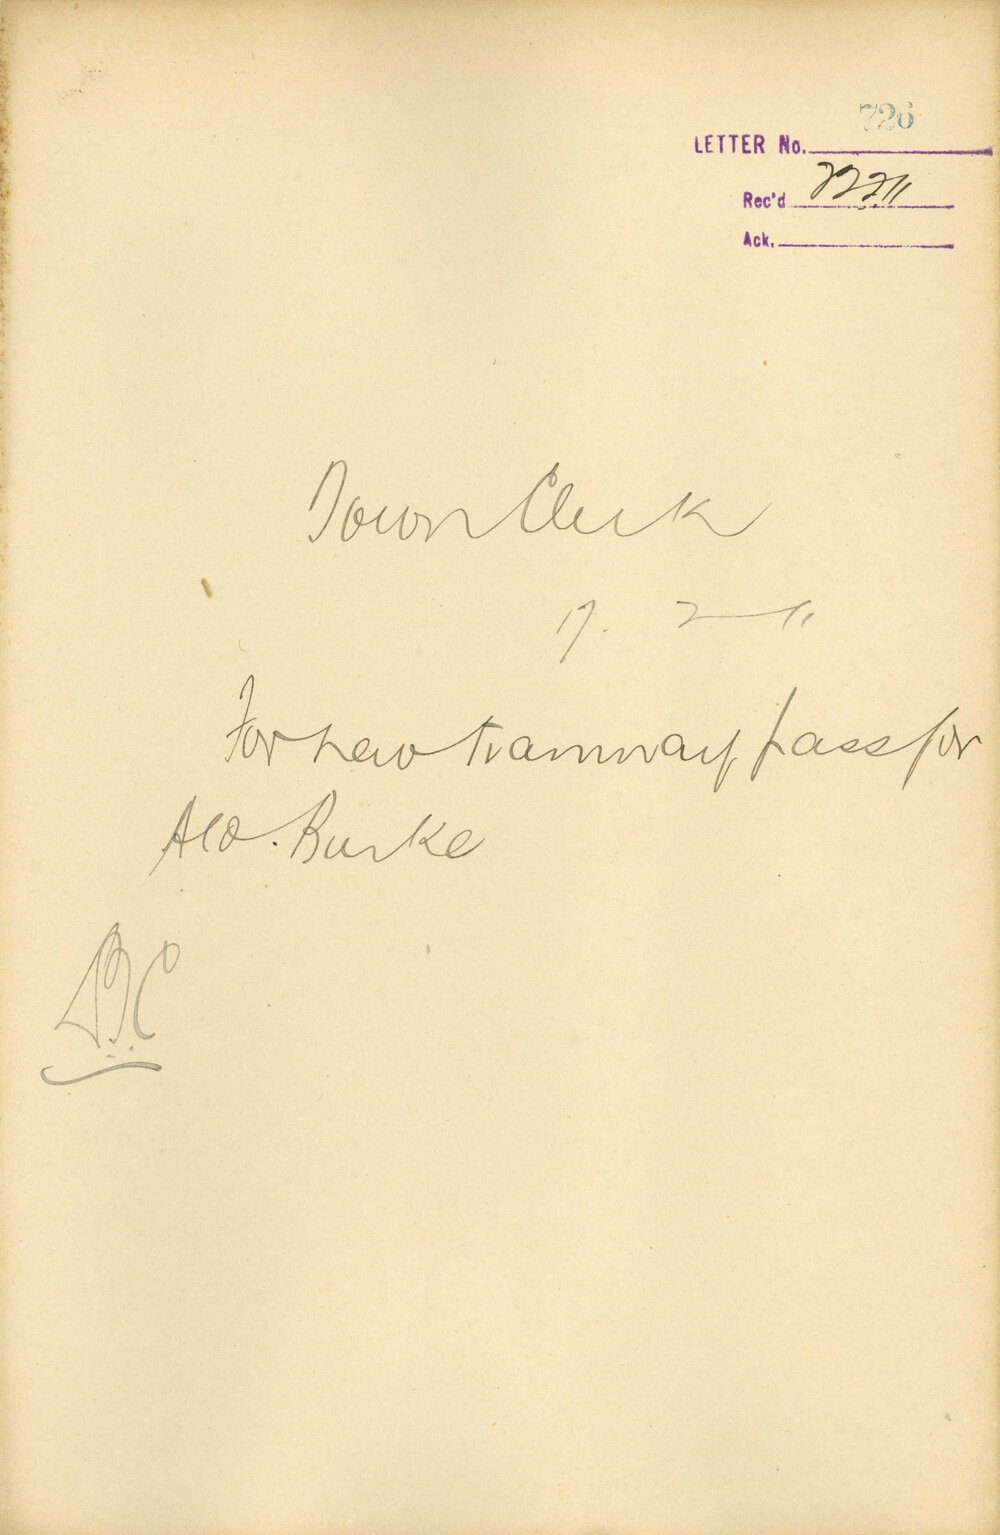 726
LETTER No.
Rec'd
Ack.
Town Clerk
17. 2 11
For new tramway pass for
Ald. Burke